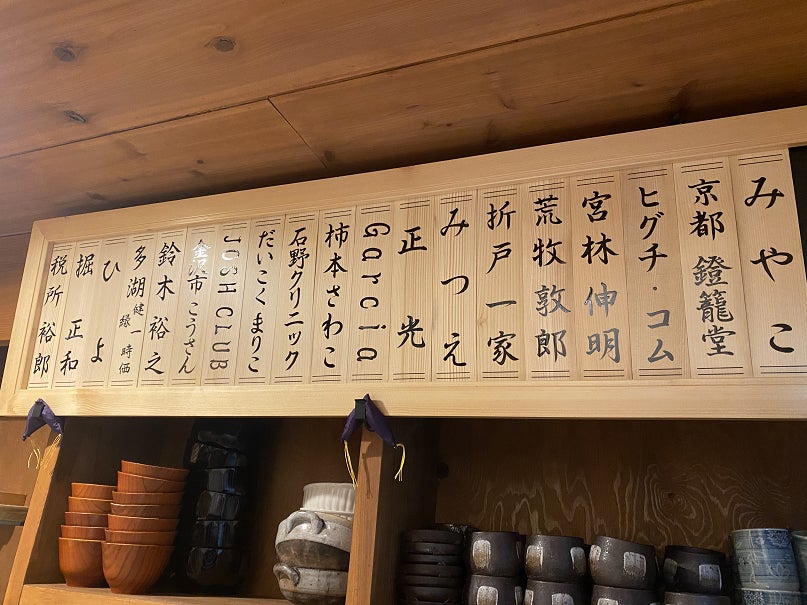 みやこ
京都 鐙籠堂
ヒグチ・コム
宮林 伸明
荒牧 敦郎
折戸一家
みつえ
正光
Garcia
柿本さわこ
石野クリニック
だいこくまりこ
JOSH CLUB
金沢市 こうさん
鈴木 裕之
多湖 健一 縁 時価
ひよ
堀 正和
税所 裕郎